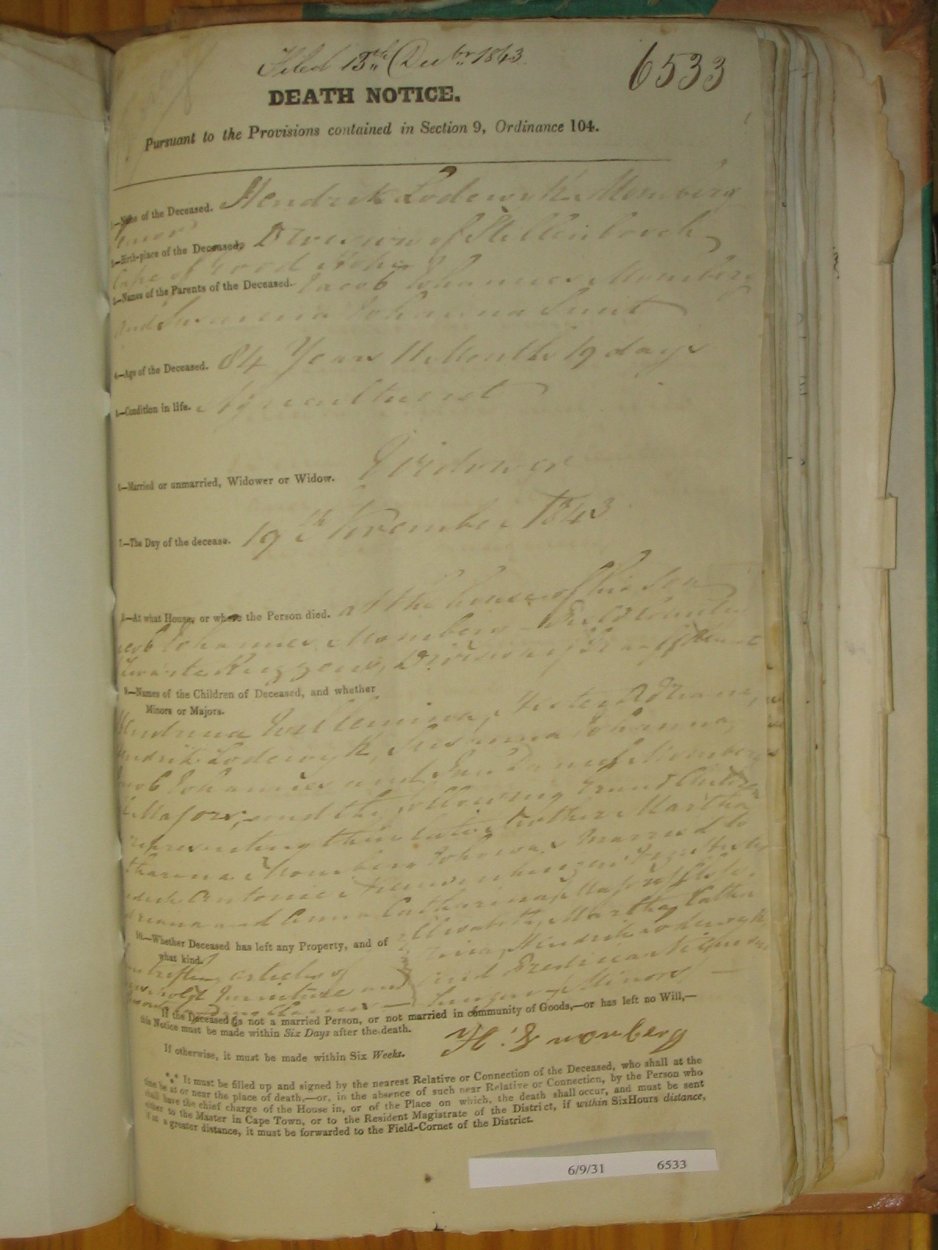 Filed 13th Decbr 1843
6533
DEATH NOTICE.
Pursuant to the Provisions contained in Section 9, Ordinance 104.
1—Name of the Deceased. Hendrik Lodewyk Momberg
Senior
2—Birth-place of the Deceased. Division of Stellenbosch
Cape of Good Hope
3—Names of the Parents of the Deceased. Jacob Johannes Momberg
and Susanna Johanna Smit
4—Age of the Deceased. 84 Years 11 Months 19 days
5—Condition in life. Agriculturist
6—Married or unmarried, Widower or Widow. Widower
7—The Day of the decease. 19th November 1843
8—At what House, or where the Person died. at the house of his Son
Jacob Johannes Momberg
Division of
9—Names of the Children of Deceased, and whether
Minors or Majors.
Hendrina Willemina, Hester Adriana,
Hendrik Lodewyk, Susanna Johanna,
Jacob Johannes and Jan Daniel Momberg
Majors, and the following Grand Children
representing their late Mother Martha
Catharina Momberg who was married to
Antonie
Adriana and Anna Catharina, Majors,
10—Whether Deceased has left any Property, and of Elisabeth, Martha Catha
what kind. rina, Hendrik Lodewyk
a few trifling articles of and Fredrica
household furniture and Minors —
If the Deceased is not a married Person, or not married in community of Goods,—or has left no Will,—
this Notice must be made within Six Days after the death.
H. L. Momberg
If otherwise, it must be made within Six Weeks.
*** It must be filled up and signed by the nearest Relative or Connection of the Deceased, who shall at the
time be at or near the place of death,—or, in the absence of such near Relative or Connection, by the Person who
shall have the chief charge of the House in, or of the Place on which, the death shall occur, and must be sent
either to the Master in Cape Town, or to the Resident Magistrate of the District, if within Six Hours distance,
if at a greater distance, it must be forwarded to the Field-Cornet of the District.
6/9/31 6533